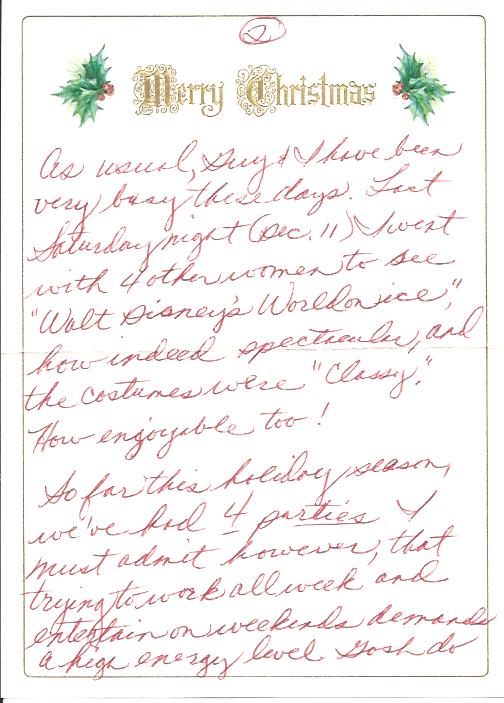 2
Merry Christmas
As usual, Guy & I have been
very busy these days. Last
Saturday night (Dec. 11) I went
with 4 other women to see
"Walt Disney's World on ice",
how indeed spectacular, and
the costumes were "Classy."
How enjoyable too!
So far this holiday season,
we've had 4 parties I
must admit however, that
trying to work all week and
entertain on weekends demands
a high energy level. Gosh do